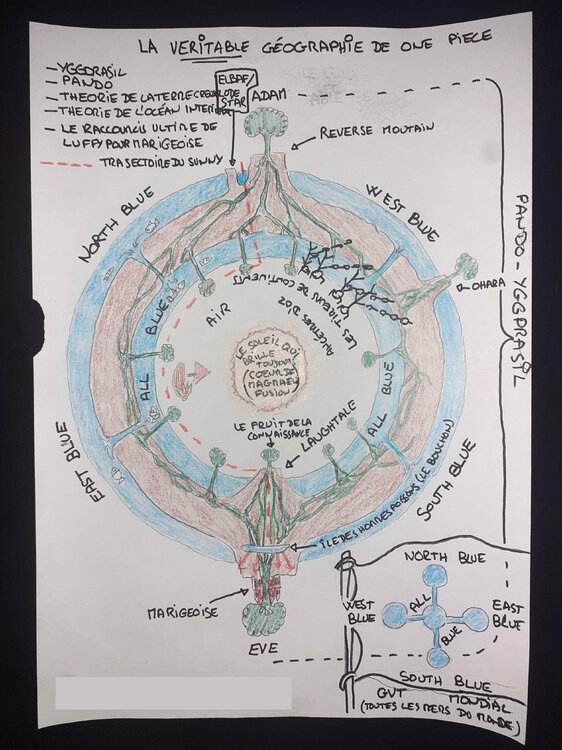 LA VERITABLE GÉOGRAPHIE DE ONE PIECE
- YGGDRASIL
- PANDO
- THEORIE DE LA TERRE CREUSE
- THEORIE DE L'OCÉAN INTERIEUR
- LE RACCOURCIS ULTIME DE
LUFFY POUR MARIGEOISE
--- TRAJECTOIRE DU SUNNY
ELBAF/
STAR
ADAM
REVERSE MOUTAIN
NORTH BLUE
WEST BLUE
OHARA
PANDO - YGGDRASIL
LES TIREURS DE CONTINENTS
ANCETRES D'OZ
AIR
ALL BLUE
ALL BLUE
LE SOLEIL QUI
BRILLE
TOUJOURS
(COEUR DE
MAGMA EN
FUSION)
LE FRUIT DE LA
CONNAISSANCE
LAUGHTALE
EAST BLUE
SOUTH BLUE
ÎLE DES HOMMES POISSONS (LE BOUCHON)
MARIGEOISE
EVE
NORTH BLUE
WEST
BLUE
ALL
BLUE
EAST
BLUE
SOUTH BLUE
GVT MONDIAL
(TOUTES LES MERS DU MONDE)